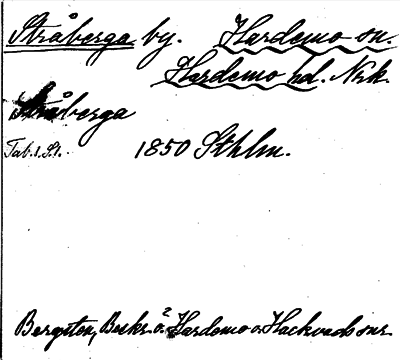 Stråberga by. Hardemo sn.
Hardemo hd. Nrk.
Stråberga
Tab. 1. St. 1850 Sthlm.
Bergsten, Beskr. ö. Hardemo o. Hackvads snr